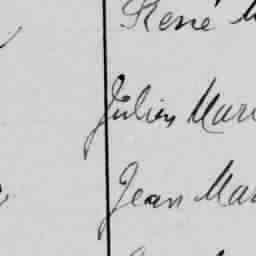 René M
Julien Mari
Jean Mar